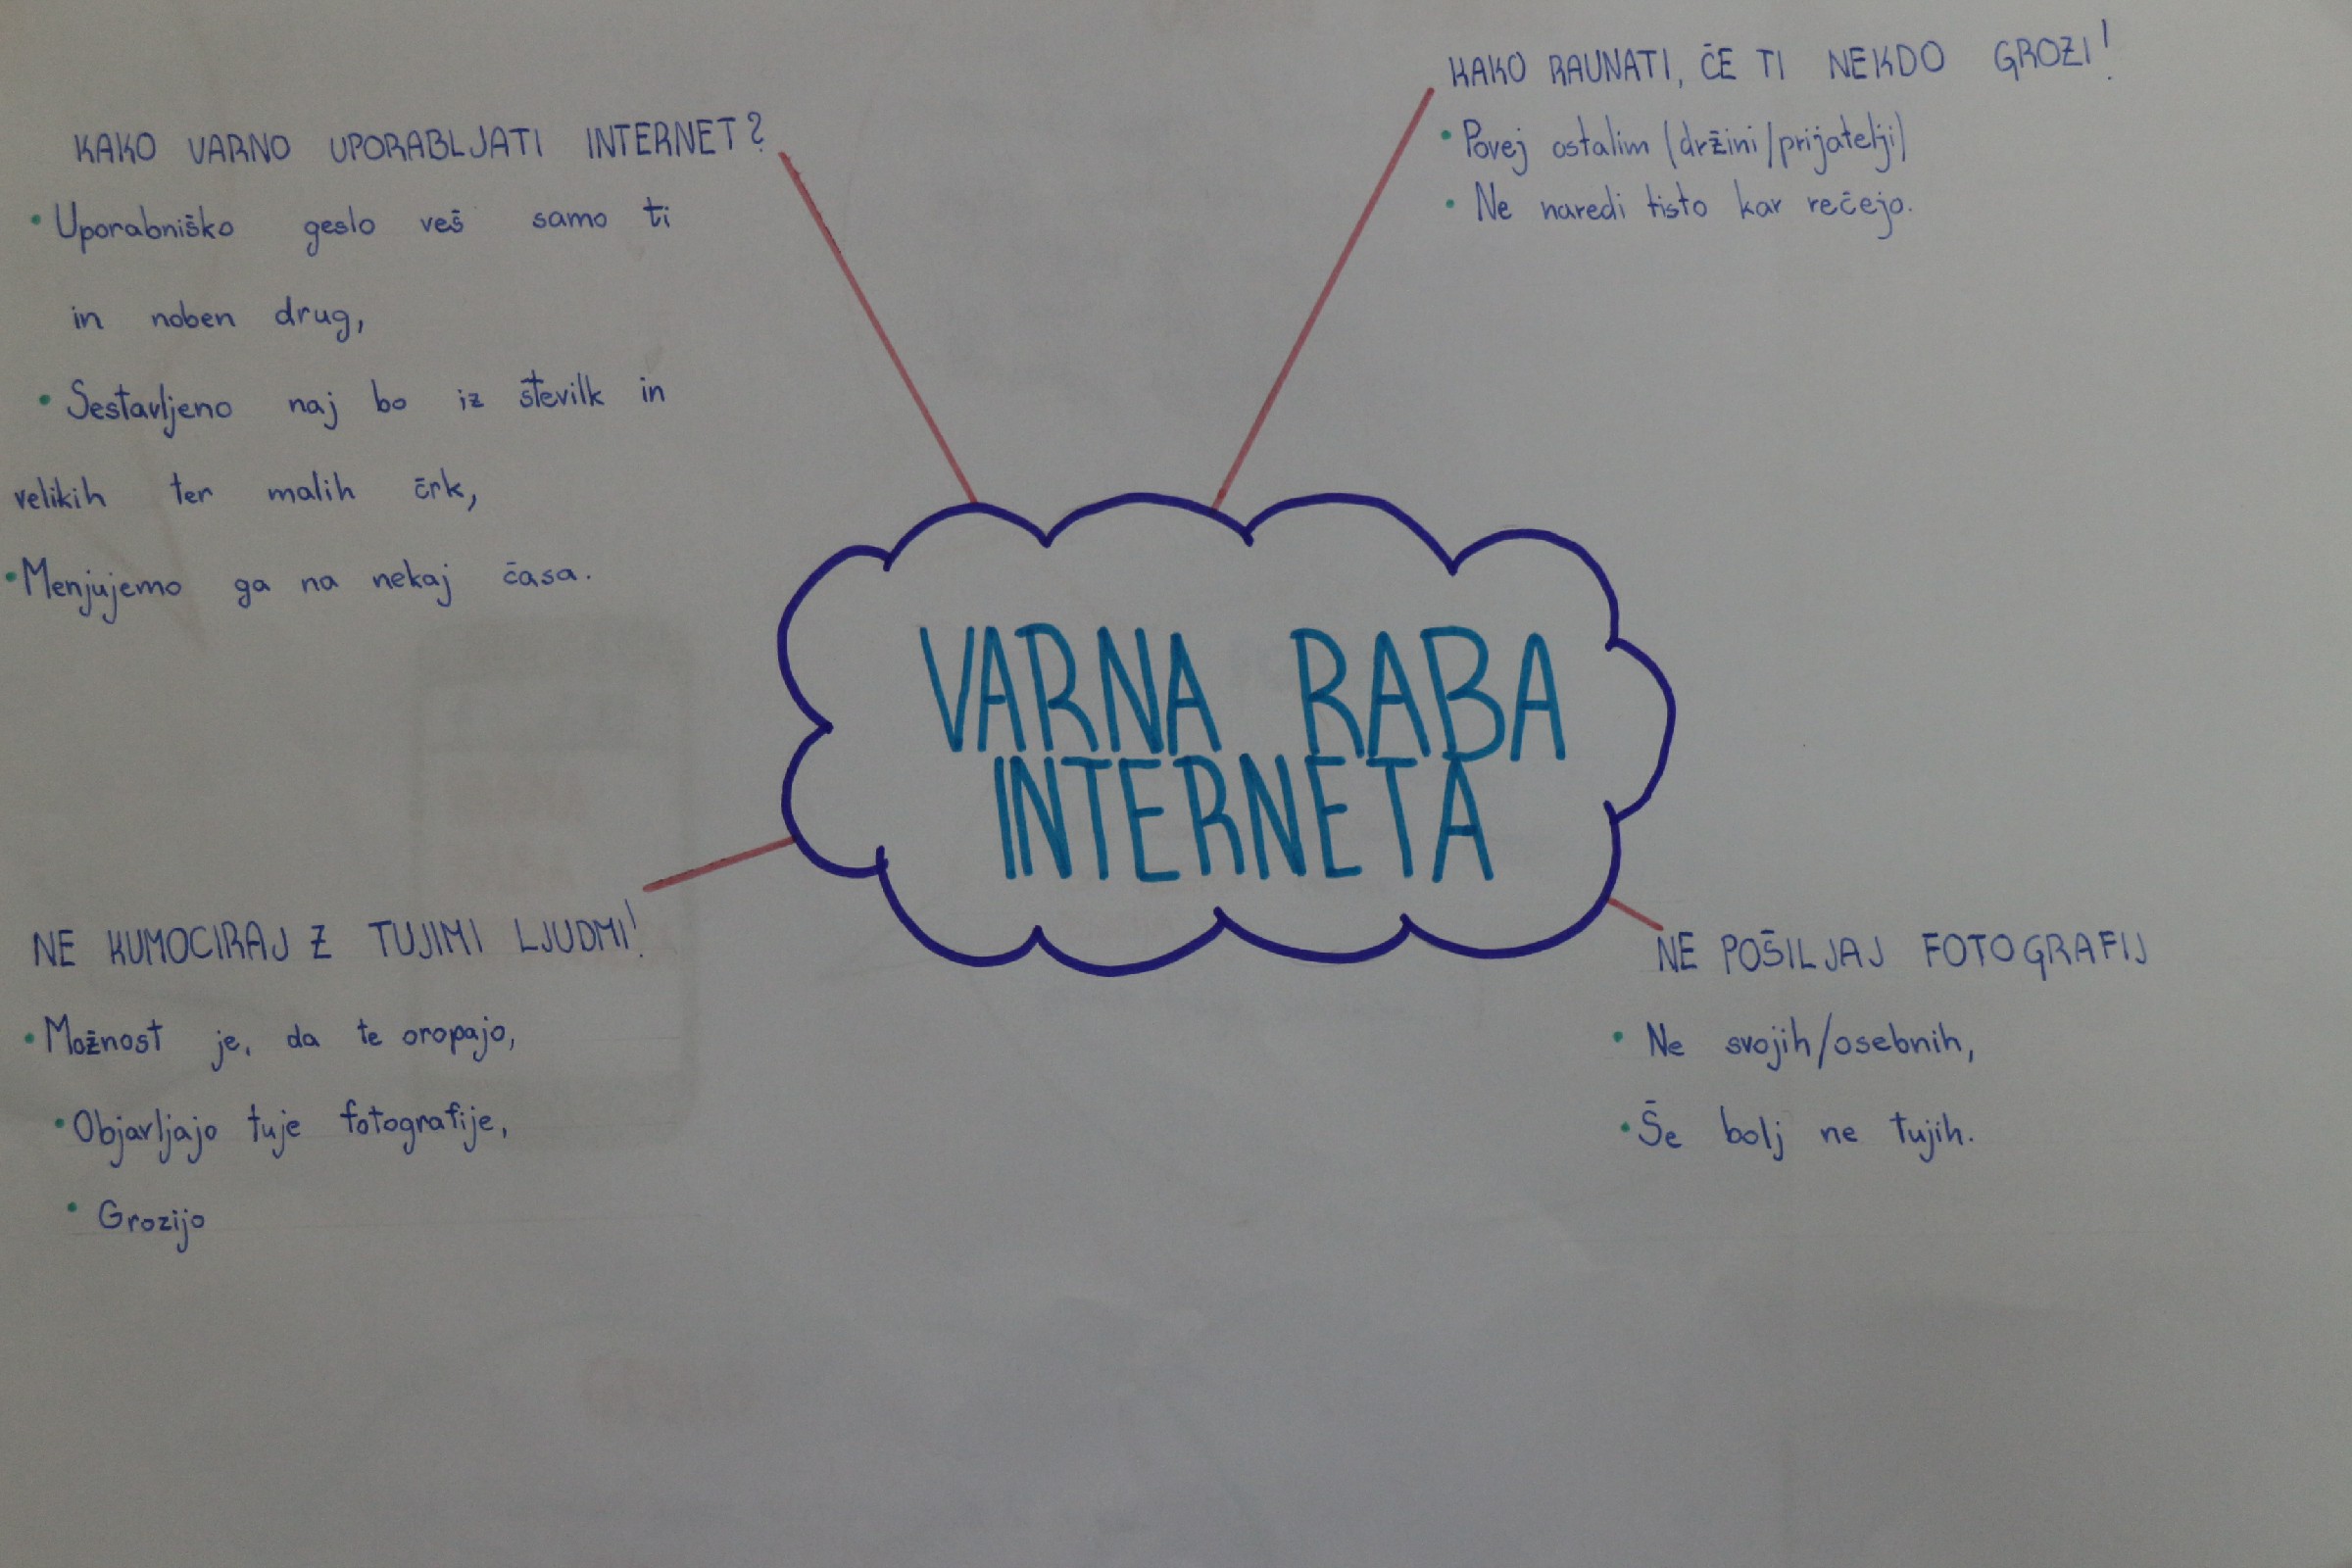 KAKO VARNO UPORABLJATI INTERNET?
• Uporabniško geslo veš samo ti
in noben drug,
• Sestavljeno naj bo iz številk in
velikih ter malih črk,
• Menjujemo ga na nekaj časa.
KAKO RAUNATI, ČE TI NEKDO GROZI!
• Povej ostalim (držini/prijatelji)
• Ne naredi tisto kar rečejo.
VARNA RABA
INTERNETA
NE KUMOCIRAJ Z TUJIMI LJUDMI!
• Možnost je, da te oropajo,
• Objavljajo tuje fotografije,
• Grozijo
NE POŠILJAJ FOTOGRAFIJ
• Ne svojih/osebnih,
• Še bolj ne tujih.